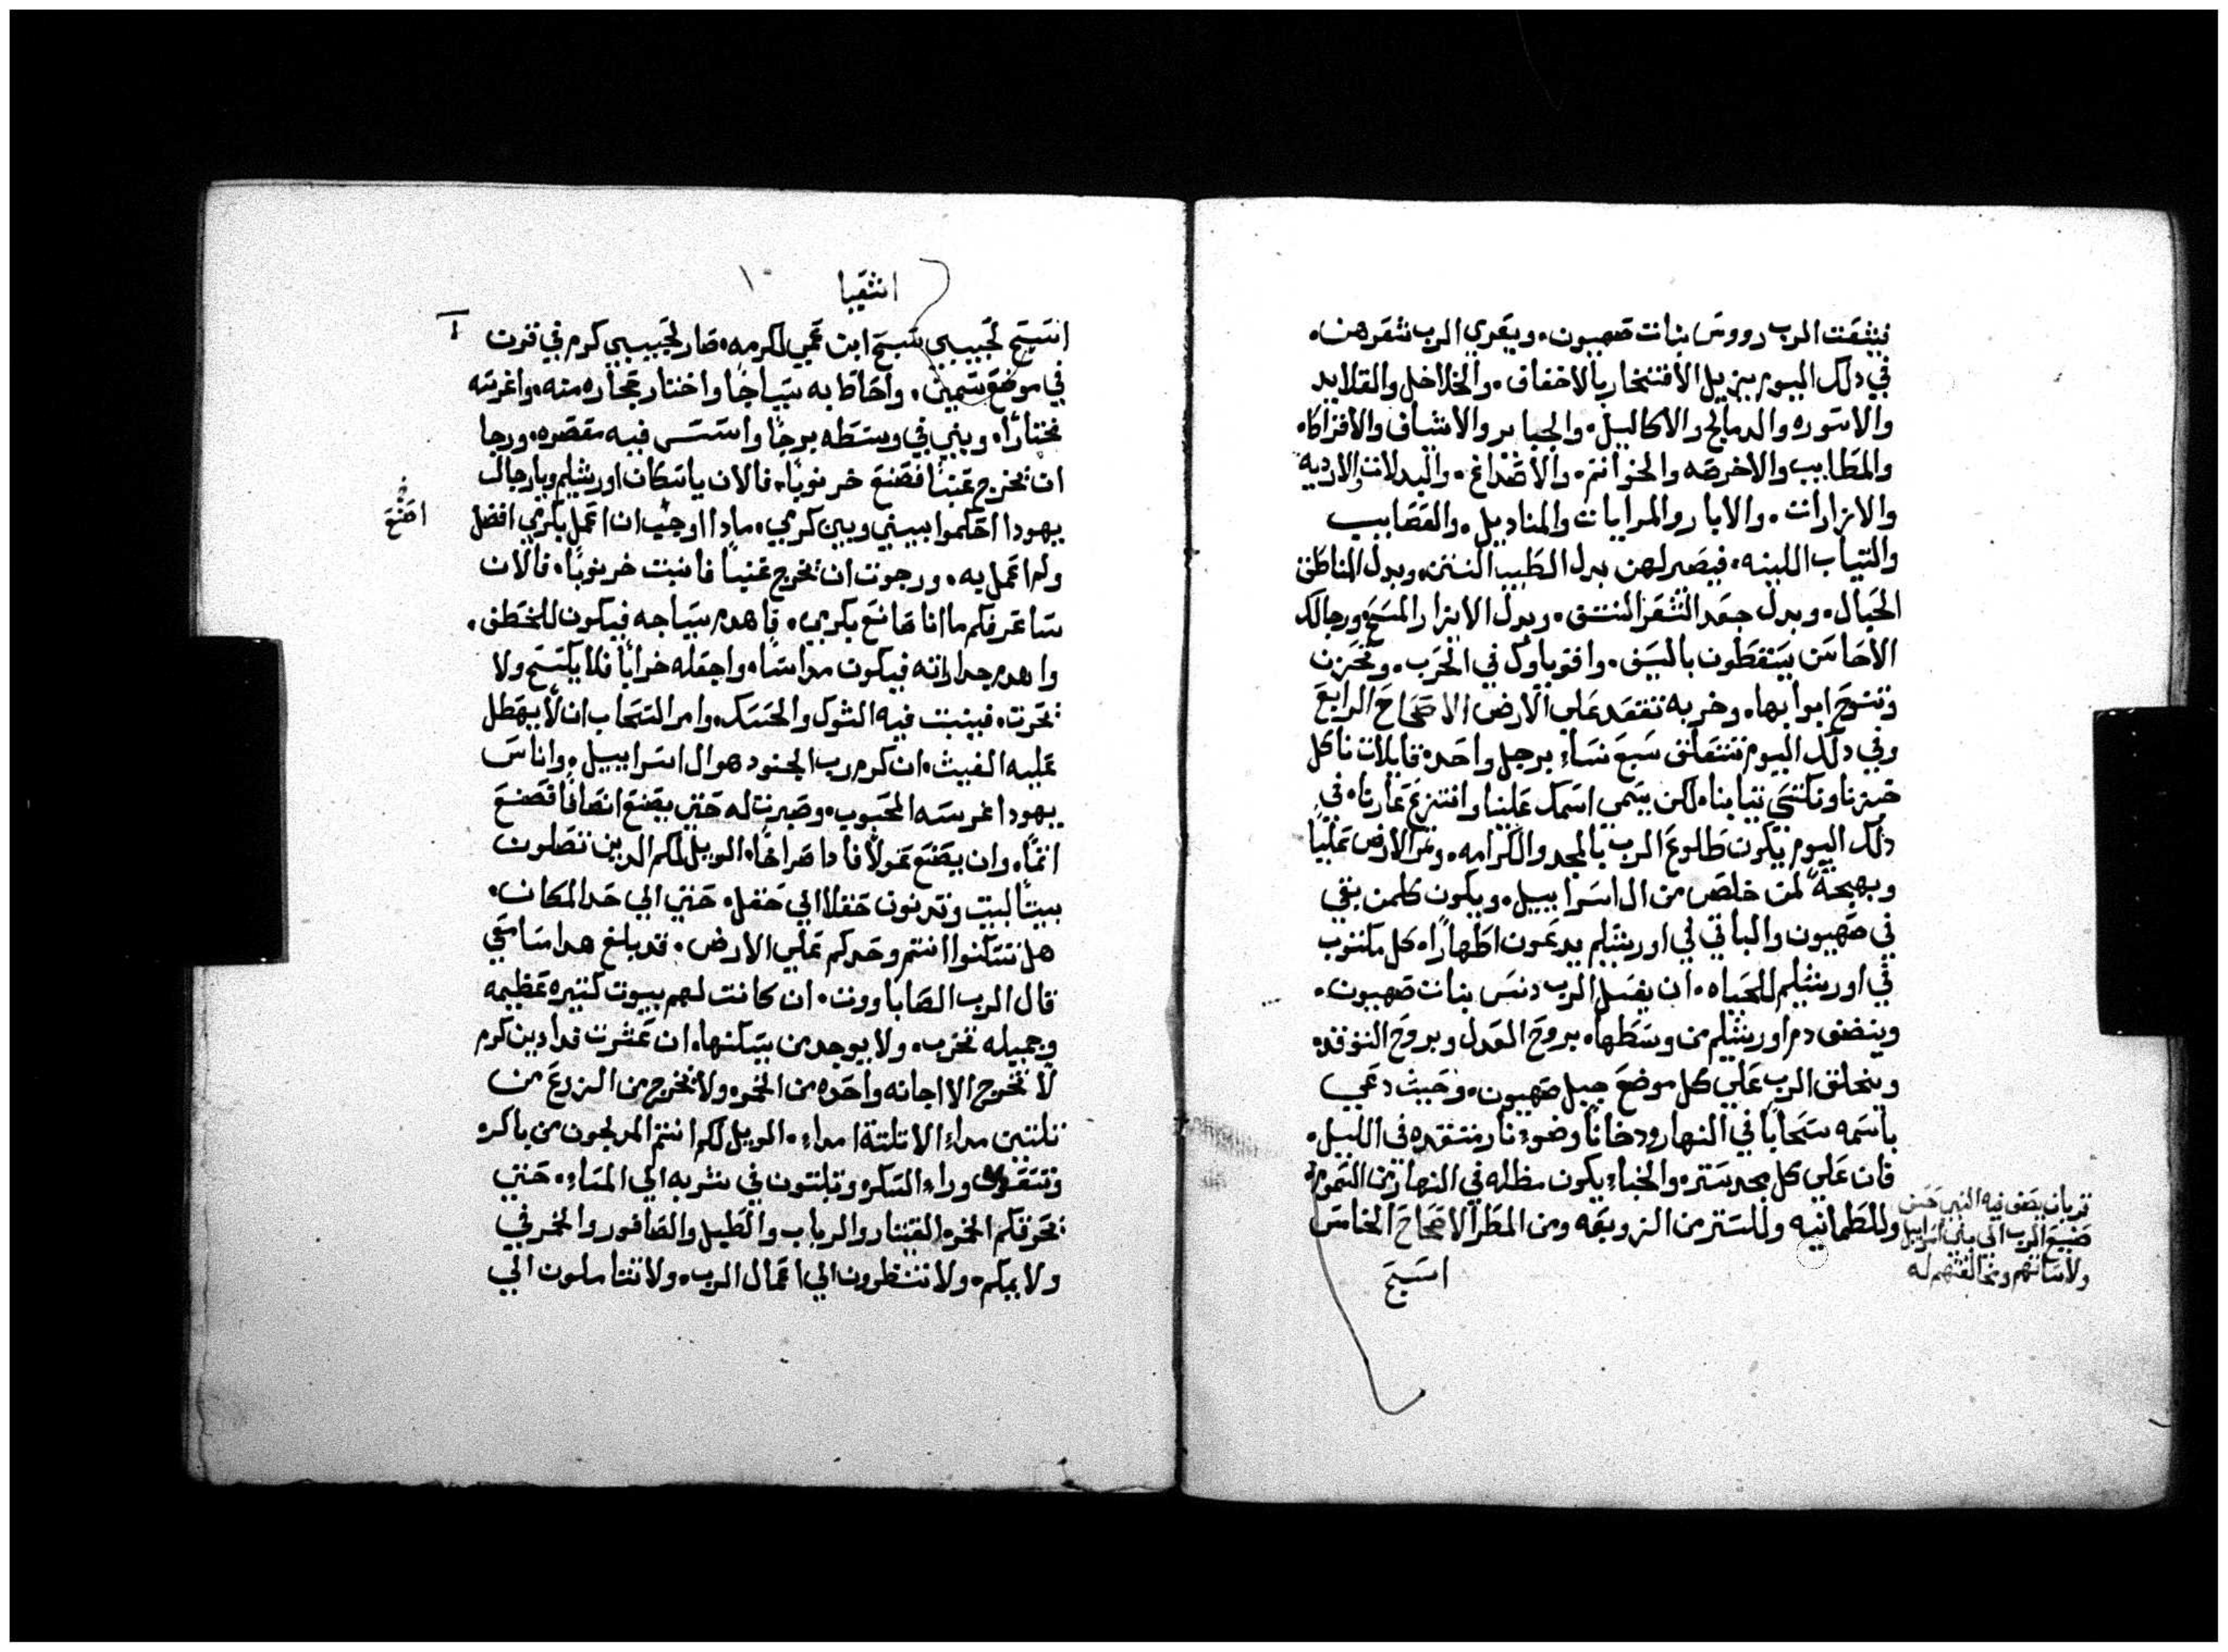 فيثقت الرب رووس بنات صهيون. ويعري الرب شعرهن.
في دلك اليوم يزيل الافتخار بالاخفاف. والخلاخل والقلايد
والاسوره والدمالج والاكاليل. والجباير والاشناف والافراكا.
والمطاييب والاخرصه والخواتم. والاصداغ. والبدلات والارديه
والازارات. والابار والمرايات والمناديل. والعصاييب
والتياب اللينه. فيصير لهن بدل الطيب النتن. وبدل المناطق
الحبال. وبدل جعد الشعر النتف. وبدل الازار المسح. ورجالك
الاحاسن يسقطون بالسيف. واقوياوك في الحرب. وتحزن
وتنوح ابوابها. وخربه تقعد علي الارض الاصحاح الرابع
وفي دلك اليوم تتعلق سبع نساءِ برجل واحد. قايلات ناكل
خبزنا ونكتسي تيابنا. لكن يسمي اسمك علينا وانتزع عارنا. في
دلك اليوم يكون طلوع الرب بالمجد والكرامه. وثمر الارض عليا
وبهجة لمن خلص من ال اسراييل. ويكون كلمن بقي
في صهيون والباقي في اورشليم يدعون اطهاراً. كل مكتوب
في اورشليم للحياه. ان يغسل الرب دنس بنات صهيون.
وينضف دم اورشليم من وسطها. بروح العدل وبروح التوقد.
ويخلق الرب علي كل موضع جبل صهيون. وحيث دعي
باسمه سحاباً في النهار ودخاناً وضوءِ نار متقده في الليل.
فان علي كل مجد ستره. والخباءِ يكون مظله في النهار من السموم
وللطمانيه وللستر من الزوبعه ومن المطر الاصحاح الخامس
اسبح
قربان يصف فيه النبي حسن
صنيع الرب الي بني اسراييل
ولاسانهم ومخالفتهم له
اشعيا
١٠
اسبح لحبيبي تسبيح ابن عمي لكرمه. صار لحبيبي كرم في قرن
في موضع سمين. واحاط به سياجاً واختار حجاره منه. واغرسه
مختاراً. وبني في وسطه برجاً واسس فيه معصره. ورجا
ان يخرج عنباً فصنع خرنوباً. فالان ياسكان اورشليم ويارجال
يهودا احكموا بيني وبين كرمي. مادا اوجب ان اعمل بكرمي افضل
اصنع
ولم اعمل به. ورجوت ان يخرج عنباً فانبت خرنوباً. فالان
ساعرفكم ما انا صانع بكرمي. فاهدم سياجه فيكون للخطف.
واهدم جداراته فيكون مداساً. واجعله خراباً فلا يكسح ولا
يحرت. فينبت فيه الشوك والحسك. وامر السحاب ان لا يهطل
عليه الغيث. ان كرم رب الجنود هو ال اسراييل. واناس
يهودا غرسه المحبوب. وصبرت له حتي يصنع انصافاً فصنع
اثماً. وان يصنع عدولاً فادا صراخاً. الويل لكم الدين تصلون
بيتاً لبيت وتدنون حقلاً الي حقل. حتي الي حد المكان.
هل تسكنوا انتم وحدكم علي الارض. قد بلغ هدا مسامعي
قال الرب الصاباووت. ان كانت لهم بيوت كتيره عظيمه
وجميله تخرب. ولا يوجد من يسكنها. ان عشرت فدادين كرم
لا تخرج الا اجانه واحده من الخمر. ولا يخرج من الزرع من
تلتين مداءِ الا تلتة امداءِ. الويل لكم انتم المدلجون من باكر
وراءِ السكر. وتلبتون في شربه الي المساءِ. حتي
يحرقكم الخمر. القيتار والرباب والطبل والصافور والخمر في
ولايمكم. ولا تنظرون الي اعمال الرب. ولا تتاملون الي